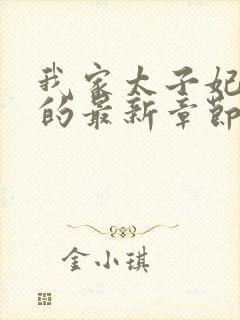 我家太子妃
的最新章节
金小琪